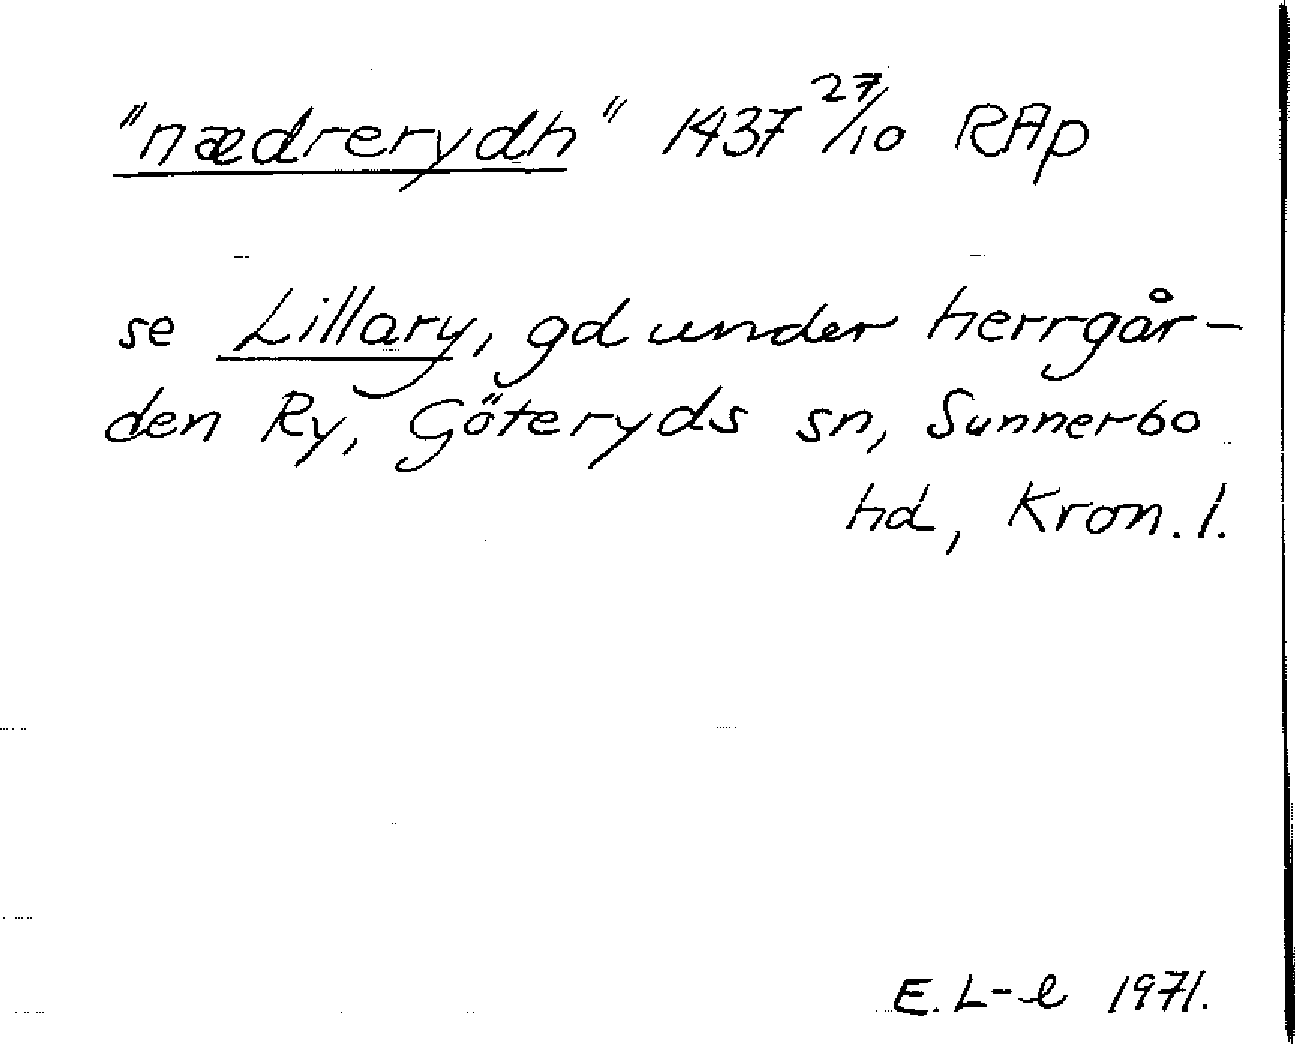 "nædrerydh" 1437 27/10 RAp
se Lillary, gd under herrgår-
den Ry, Göteryds sn, Sunnerbo
hd, Kron. l.
E. L-l 1971.